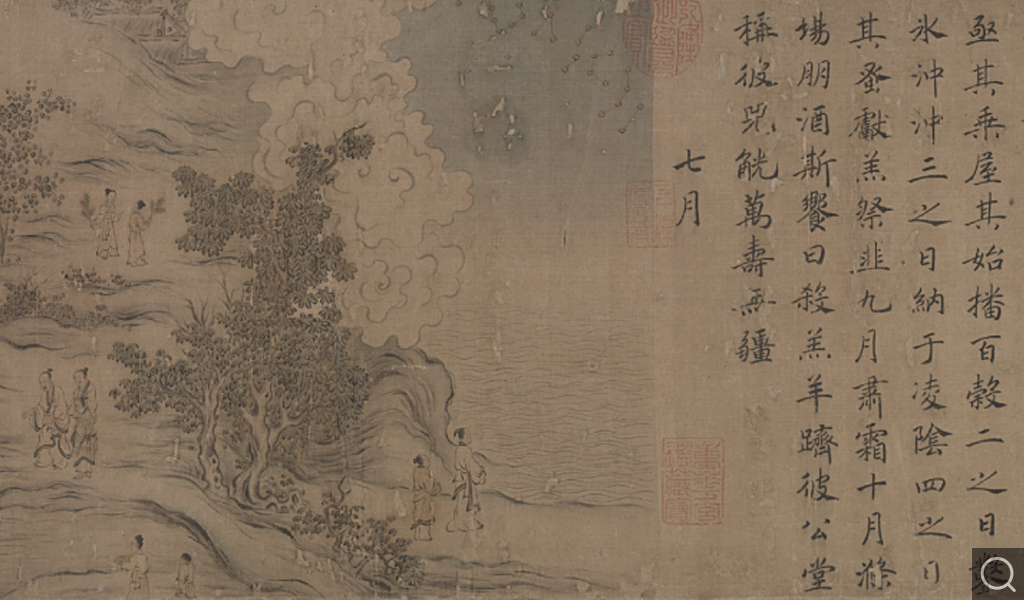 亟其乘屋其始播百穀二之日鑿
氷沖沖三之日納于凌陰四之日
其蚤獻羔祭韭九月肅霜十月滌
場朋酒斯饗曰殺羔羊躋彼公堂
稱彼兕觥萬壽無疆
七月